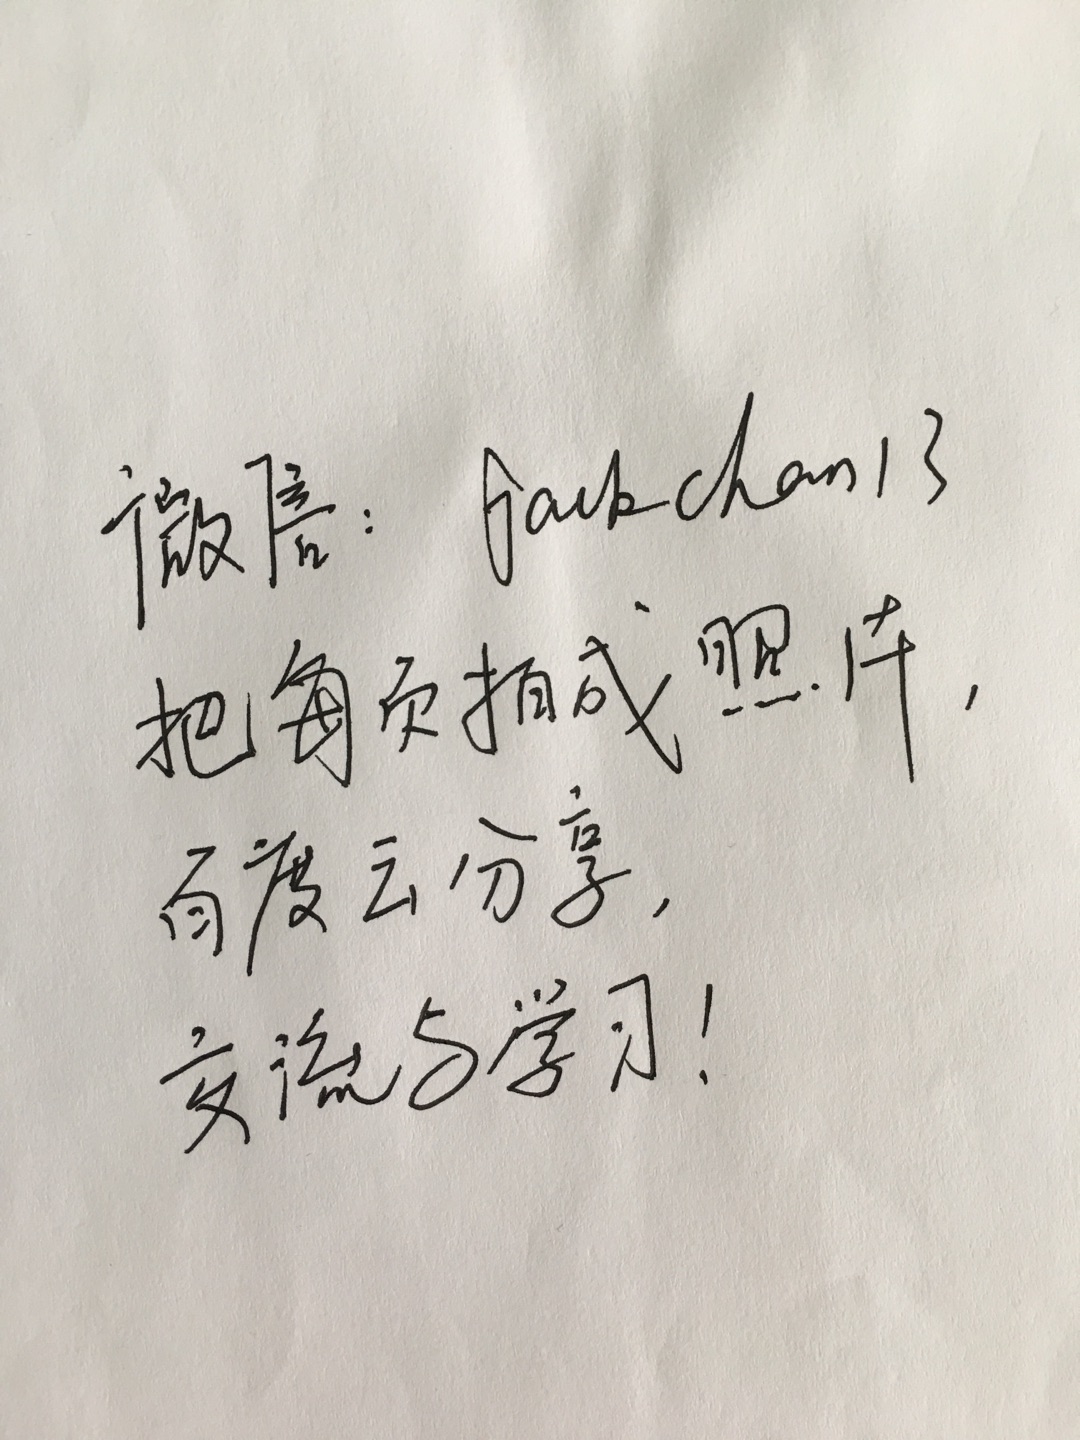 微信：jackchan13
把每页拍成照片，
百度云分享，
交流与学习！